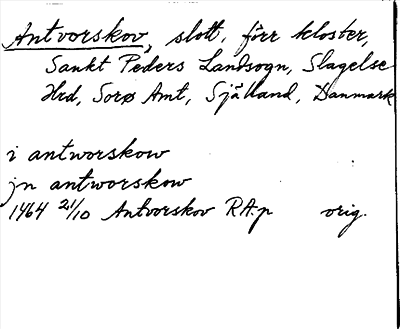 Antvorskov, slott, förr kloster,
Sankt Peders Landsogn, Slagelse
Hrd, Sorø Amt, Själland, Danmark
i antworskow
jn antworskow
1464 21/10 Antvorskov RA:p orig.